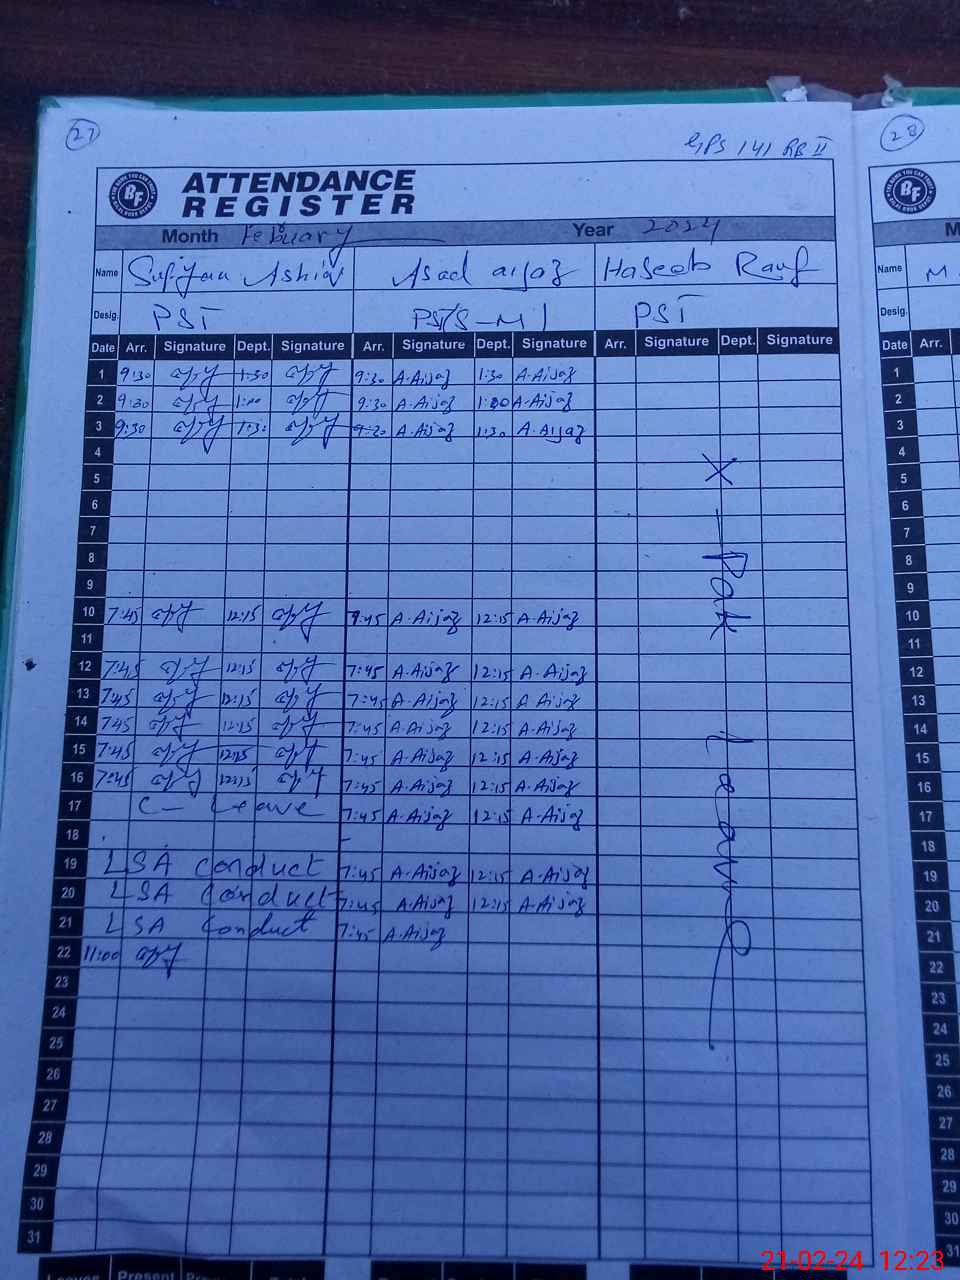 27
GPS 141 RB II
28
BF
ATTENDANCE
REGISTER
BF
Month Febuary Year 2024
M
Name Sufyan Ashiq Asad aijaz Haseeb Rauf
Name M
Desig. PST PST/S-M1 PST
Desig.
Date Arr. Signature Dept. Signature Arr. Signature Dept. Signature Arr. Signature Dept. Signature
Date Arr.
1 9:30 1:30 9:30 A.Aijaz 1:30 A.Aijaz 1
2 9:30 1:00 9:30 A.Aijaz 1:00 A.Aijaz 2
3 9:30 1:30 9:30 A.Aijaz 1:30 A.Aijaz 3
4 4
5 X 5
6 6
7 7
8 Pak 8
9 9
10 7:45 12:15 A.Aijaz 12:15 A.Aijaz 10
11 11
12 7:45 12:15 7:45 A.Aijaz 12:15 A.Aijaz 12
13 7:45 12:15 7:45 A.Aijaz 12:15 A.Aijaz 13
14 7:45 12:15 7:45 A.Aijaz 12:15 A.Aijaz 14
15 7:45 12:15 7:45 A.Aijaz 12:15 A.Aijaz 15
16 7:45 12:15 7:45 A.Aijaz 12:15 A.Aijaz 16
17 C- Leave 7:45 A.Aijaz 12:15 A.Aijaz Leave 17
18 18
19 LSA conduct 7:45 A.Aijaz 12:15 A.Aijaz 19
20 LSA conduct 7:45 A.Aijaz 12:15 A.Aijaz 20
21 LSA conduct 7:45 A.Aijaz 21
22 11:00 22
23 23
24 24
25 25
26 26
27 27
28 28
29 29
30 30
31 31
Leaves Present
21-02-24 12:23